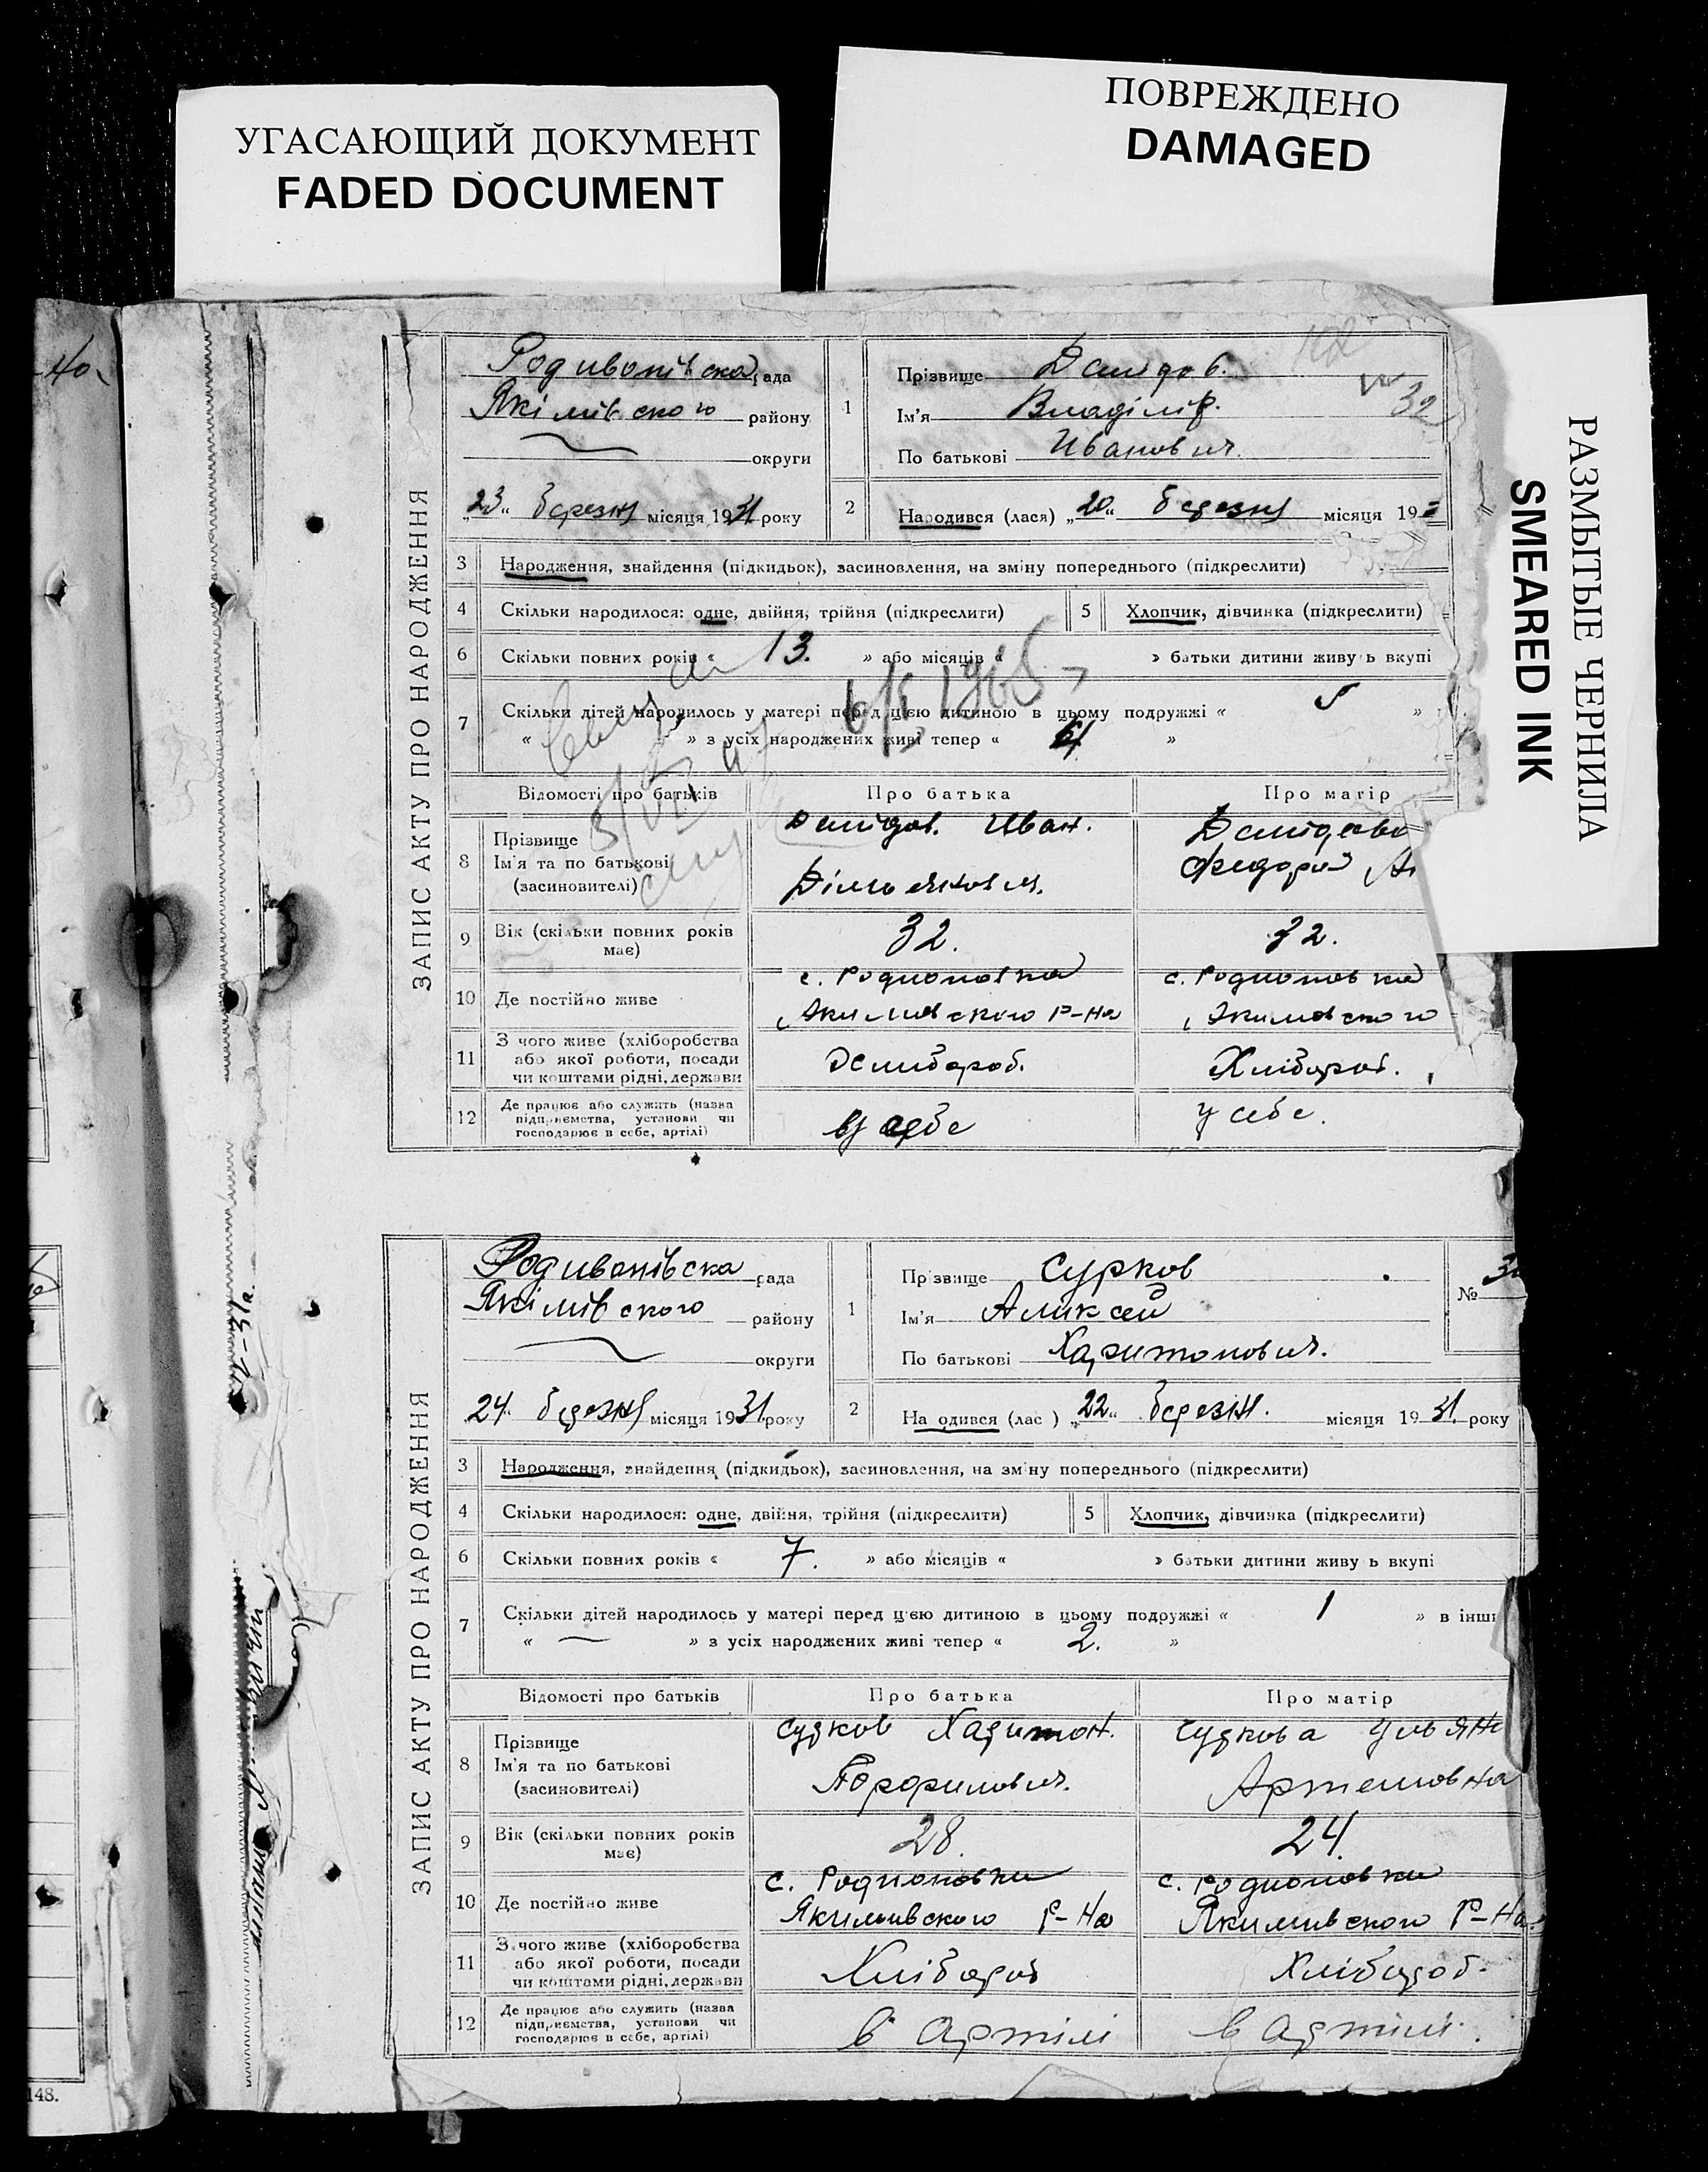 УГАСАЮЩИЙ ДОКУМЕНТ
FADED DOCUMENT
ПОВРЕЖДЕНО
DAMAGED
РАЗМЫТЫЕ ЧЕРНИЛА
SMEARED INK
40
ЗАПИС АКТУ ПРО НАРОДЖЕННЯ
Родивонівска рада
Якімівского району
округи
„23“ березня місяця 1931 року
1
Прізвище Демидов.
Ім'я Владімір.
По батькові Иванович.
32
2 Народився (лася) „20“ березня місяця 193
3 Народження, знайдення (підкидьок), засиновлення, на зміну попереднього (підкреслити)
4 Скільки народилося: одне, двійня, трійня (підкреслити) 5 Хлопчик, дівчинка (підкреслити)
6 Скільки повних років « 13. » або місяців « » батьки дитини живу ь вкупі
7 Скільки дітей народилось у матері перед цією дитиною в цьому подружжі « 5 »
« » з усіх народжених живі тепер « »
6/X 1965
Відомості про батьків Про батька Про матір
8 Прізвище Ім'я та по батькові (засновителі) Иван.
Федора
9 Вік (скільки повних років має) 32. 32.
10 Де постійно живе с. Родионовка с. Родионовка
Якимовского р-на Якимовского
11 З чого живе (хліборобства або якої роботи, посади чи коштами рідні, держави Хлибороб. Хлібороб.
12 Де працює або служить (назва підприємства, установи чи господарює в себе, артілі) у себе у себе.
ЗАПИС АКТУ ПРО НАРОДЖЕННЯ
Родивонівска рада
Якімівского району
округи
24“ березня місяця 1931 року
1
Пр звище Сурков
Ім'я Аликсей
По батькові Харитонович.
№
2 На одився (лас ) „22“ березня. місяця 1931 року
3 Народження, знайдення (підкидьок), засиновлення, на зм ну попереднього (підкреслити)
4 Скільки народилося: одне, двійня, трійня (підкреслити) 5 Хлопчик, дівчинка (підкреслити)
6 Скільки повних років « 7. » або місяців « » батьки дитини живу ь вкупі
7 Скільки дітей народилось у матері перед цією дитиною в цьому подружжі « 1 » в інш
« — » з усіх народжених живі тепер « 2. »
Відомості про батьків Про батька Про матір
8 Прізвище Ім'я та по батькові (засиновителі) Сурков Харитон. Суркова Ульян
Порфирович. Артемовна
9 Вік (скільки повних років має) 28. 24.
10 Де постійно живе с. Родионовка с. Родионовка
Якимивского р-на Якимивского р-на
11 З чого живе (хліборобства або якої роботи, посади чи коштами рідні, держави Хлібороб Хлібороб.
12 Де працює або служить (назва підприємства, установи чи господарює в себе, артілі) в артілі в артілі.
148.